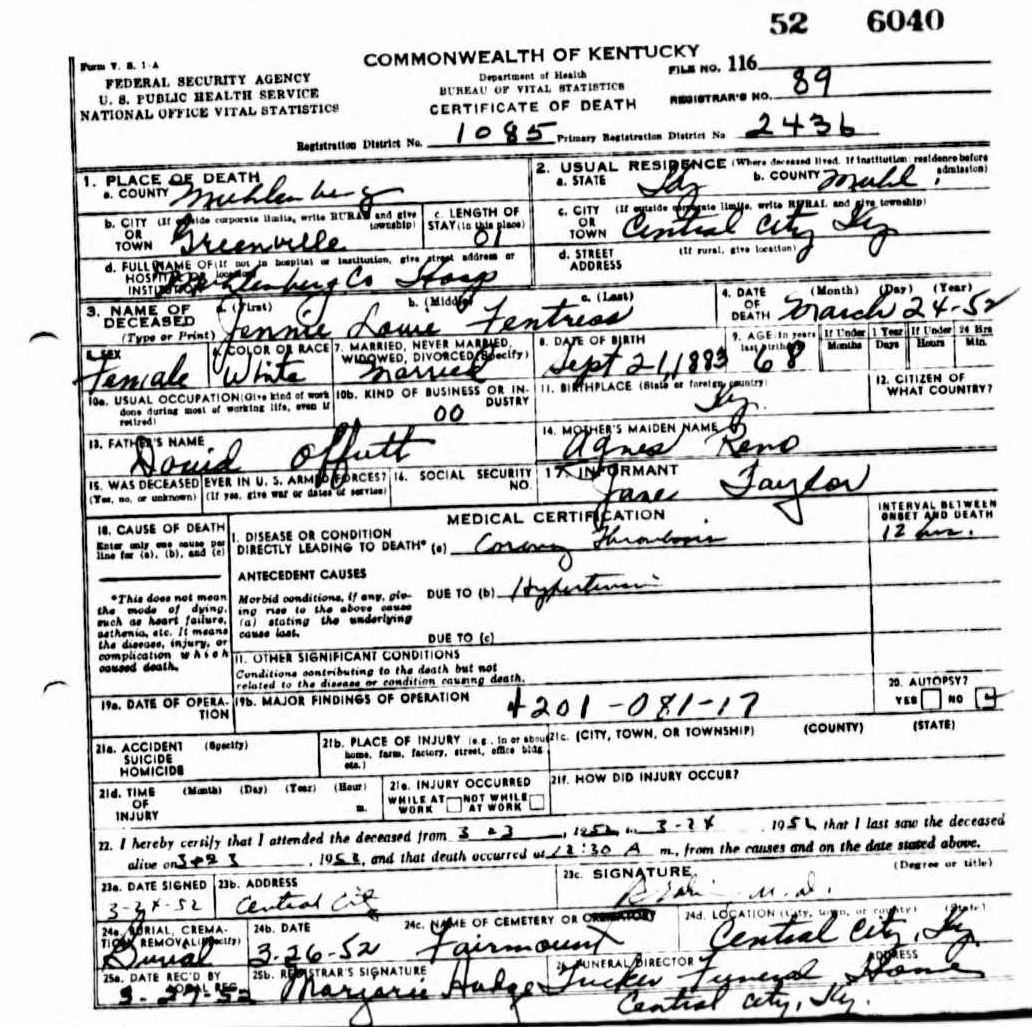 52 6040
Form V. S. 1-A
COMMONWEALTH OF KENTUCKY
FEDERAL SECURITY AGENCY
U. S. PUBLIC HEALTH SERVICE
NATIONAL OFFICE VITAL STATISTICS
Department of Health
BUREAU OF VITAL STATISTICS
CERTIFICATE OF DEATH
FILE NO. 116
REGISTRAR'S NO. 89
Registration District No. 1085 Primary Registration District No 2436
1. PLACE OF DEATH
a. COUNTY Muhlenberg
2. USUAL RESIDENCE (Where deceased lived. If institution: residence before admission)
a. STATE Ky b. COUNTY Muhl.
b. CITY (If outside corporate limits, write RURAL and give township)
OR
TOWN Greenville
c. LENGTH OF STAY (in this place)
01
c. CITY (If outside corporate limits, write RURAL and give township)
OR
TOWN Central City Ky
d. FULL NAME OF (If not in hospital or institution, give street address or location)
HOSPITAL OR
INSTITUTION Muhlenberg Co Hosp
d. STREET ADDRESS (If rural, give location)
3. NAME OF DECEASED
(Type or Print)
a. (First) b. (Middle) c. (Last)
Jennie Lowe Fentress
4. DATE OF DEATH (Month) (Day) (Year)
March 24-52
5. SEX
Female
6. COLOR OR RACE
White
7. MARRIED, NEVER MARRIED, WIDOWED, DIVORCED (Specify)
Married
8. DATE OF BIRTH
Sept 21, 1883
9. AGE (In years last birthday)
68
If Under 1 Year
Months Days
If Under 24 Hrs
Hours Min.
10a. USUAL OCCUPATION (Give kind of work done during most of working life, even if retired)
10b. KIND OF BUSINESS OR INDUSTRY
00
11. BIRTHPLACE (State or foreign country)
Ky.
12. CITIZEN OF WHAT COUNTRY?
13. FATHER'S NAME
David Offutt
14. MOTHER'S MAIDEN NAME
Agnes Reno
15. WAS DECEASED EVER IN U. S. ARMED FORCES?
(Yes, no, or unknown) (If yes, give war or dates of service)
16. SOCIAL SECURITY NO.
17. INFORMANT
Jane Taylor
18. CAUSE OF DEATH
Enter only one cause per line for (a), (b), and (c)
MEDICAL CERTIFICATION
INTERVAL BETWEEN ONSET AND DEATH
I. DISEASE OR CONDITION
DIRECTLY LEADING TO DEATH* (a) Coronary Thrombosis
12 hrs.
*This does not mean the mode of dying, such as heart failure, asthenia, etc. It means the disease, injury, or complication which caused death.
ANTECEDENT CAUSES
Morbid conditions, if any, giving rise to the above cause (a) stating the underlying cause last.
DUE TO (b) Hypertension
DUE TO (c)
11. OTHER SIGNIFICANT CONDITIONS
Conditions contributing to the death but not related to the disease or condition causing death.
19a. DATE OF OPERATION
19b. MAJOR FINDINGS OF OPERATION
4201-081-17
20. AUTOPSY?
YES NO
21a. ACCIDENT (Specify)
SUICIDE
HOMICIDE
21b. PLACE OF INJURY (e.g., in or about home, farm, factory, street, office bldg etc.)
21c. (CITY, TOWN, OR TOWNSHIP) (COUNTY) (STATE)
21d. TIME OF INJURY (Month) (Day) (Year) (Hour) m.
21e. INJURY OCCURRED
WHILE AT WORK NOT WHILE AT WORK
21f. HOW DID INJURY OCCUR?
22. I hereby certify that I attended the deceased from 3 23, 1952 to 3-24, 1952 that I last saw the deceased
alive on 3 23, 1952, and that death occurred at 12:30 A m., from the causes and on the date stated above.
23a. DATE SIGNED
3-24-52
23b. ADDRESS
Central City
23c. SIGNATURE (Degree or title)
M.D.
24a. BURIAL, CREMATION, REMOVAL (Specify)
Burial
24b. DATE
3-26-52
24c. NAME OF CEMETERY OR CREMATORY
Fairmount
24d. LOCATION (City, town, or county) (State)
Central City, Ky
25a. DATE REC'D BY LOCAL REG.
3-27-52
25b. REGISTRAR'S SIGNATURE
Marjorie Hudge
FUNERAL DIRECTOR ADDRESS
Tucker Funeral Home
Central City, Ky.